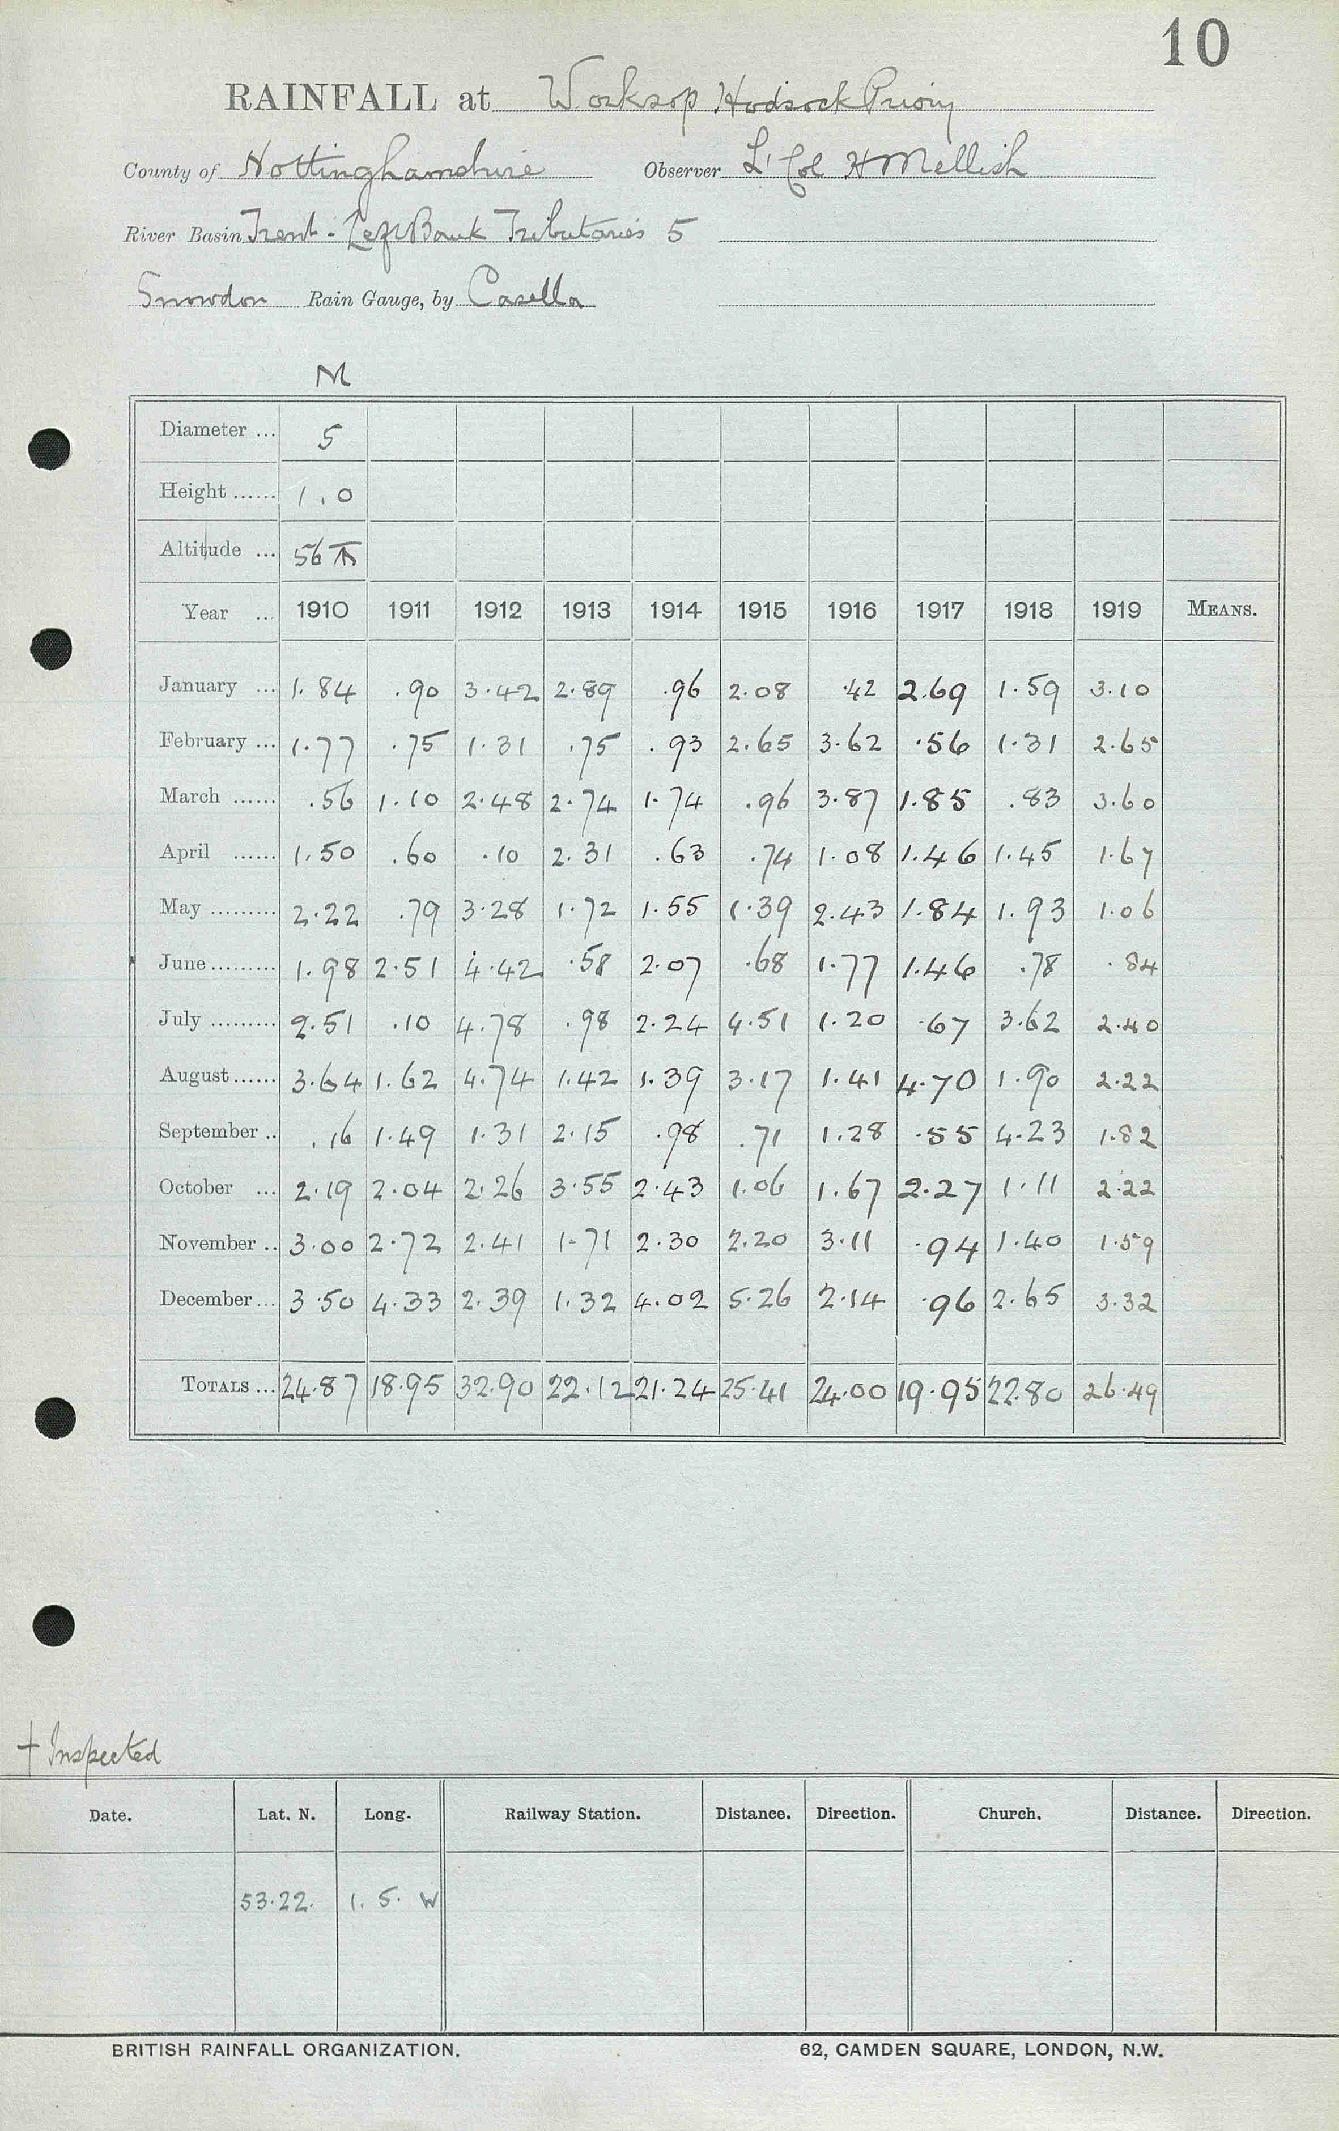 10
RAINFALL at Worksop Hodsock Priory
County of Nottinghamshire Observer Lt Col H Mellish
River Basin Trent - Left Bank Tributaries 5
Snowdon Rain Gauge, by Casella
M
Diameter ... 5
Height ...... 1.0
Altitude ... 56
Year ... 1910 1911 1912 1913 1914 1915 1916 1917 1918 1919 MEANS.
January ... 1.84 .90 3.42 2.89 .96 2.08 .42 2.69 1.59 3.10
February ... 1.77 .75 1.31 .75 .93 2.65 3.62 .56 1.31 2.65
March ...... .56 1.10 2.48 2.74 1.74 .96 3.87 1.85 .83 3.60
April ...... 1.50 .60 .10 2.31 .63 .74 1.08 1.46 1.45 1.67
May ......... 2.22 .79 3.28 1.72 1.55 1.39 2.43 1.84 1.93 1.06
June ......... 1.98 2.51 4.42 .58 2.07 .68 1.77 1.46 .78 .84
July ......... 2.51 .10 4.78 .98 2.24 4.51 1.20 .67 3.62 2.40
August ...... 3.64 1.62 4.74 1.42 1.39 3.17 1.41 4.70 1.90 2.22
September .. .16 1.49 1.31 2.15 .98 .71 1.28 .55 4.23 1.82
October ... 2.19 2.04 2.26 3.55 2.43 1.06 1.67 2.27 1.11 2.22
November .. 3.00 2.72 2.41 1.71 2.30 2.20 3.11 .94 1.40 1.59
December ... 3.50 4.33 2.39 1.32 4.02 5.26 2.14 .96 2.65 3.32
TOTALS ... 24.87 18.95 32.90 22.12 21.24 25.41 24.00 19.95 22.80 26.49
† Inspected
Date. Lat. N. Long. Railway Station. Distance. Direction. Church. Distance. Direction.
53.22. 1. 5. W
BRITISH RAINFALL ORGANIZATION. 62, CAMDEN SQUARE, LONDON, N.W.